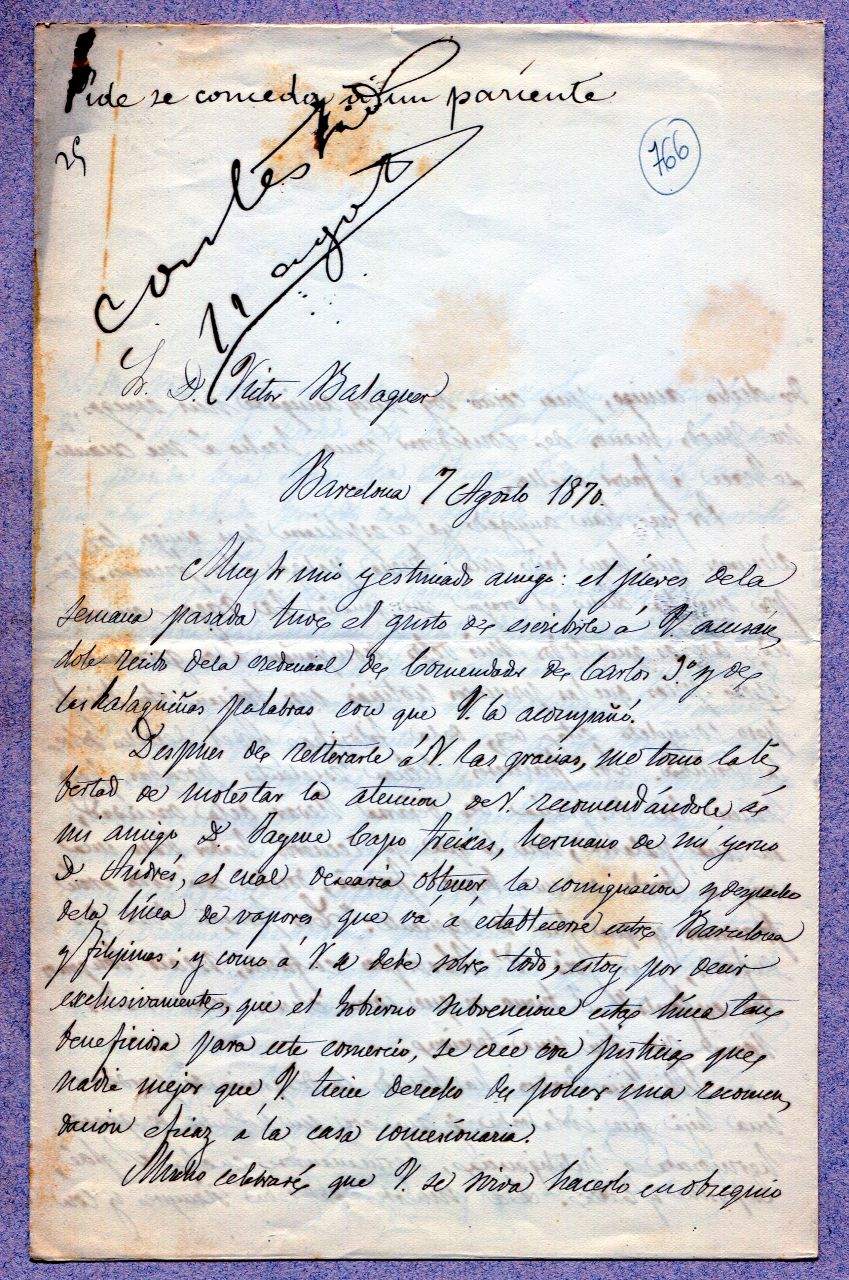 Pide se conceda á un pariente
766
Contestado
11 agost
Sr. D. Victor Balaguer
Barcelona 7 Agosto 1870.
Muy Sr mio y estimado amigo: el jueves de la
semana pasada tuve el gusto de escribirle á V. acusán,
dole recibo de la credencial de Comendador de Carlos 3.º y de
las halagüeñas palabras con que V. la acompañó.
Despues de reiterarle á V. las gracias, me tomo la li,
bertad de molestar la atencion de V. recomendándole á
mi amigo D. Jayme Capo Freixas, hermano de mi yerno
D Andrés, el cual desearia obtener la consignacion y despacho
de la línea de vapores que vá á establecerse entre Barcelona
y Filipinas; y como á V. se debe sobre todo, estoy por decir
exclusivamente, que el Gobierno subvencione esta línea tan
beneficiosa para este comercio, se crée con justicia que
nadie mejor que V. tiene derecho de poner una recomen,
dacion eficaz á la casa concesionaria.
Mucho celebraré que V. se sirva hacerlo en obsequio